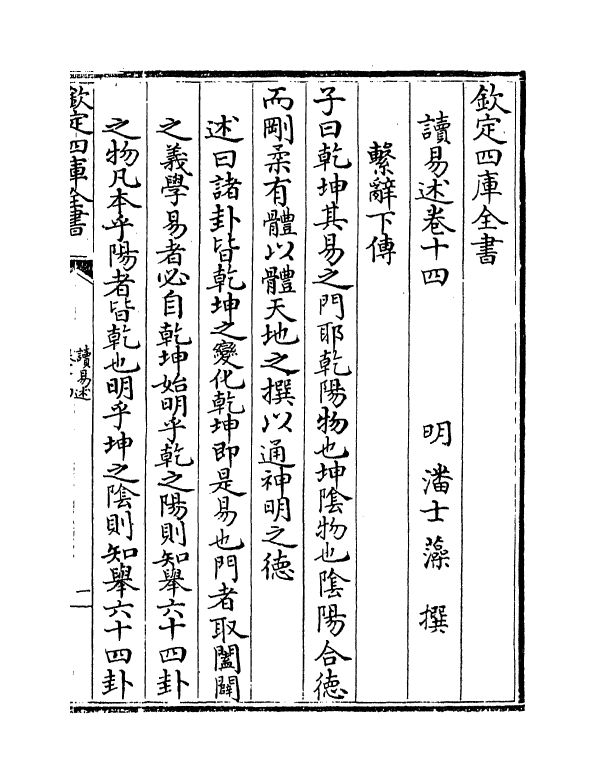 欽定四庫全書
讀易述卷十四
明 潘士藻 撰
繫辭下傳
子曰乾坤其易之門耶乾陽物也坤陰物也陰陽合德
而剛柔有體以體天地之撰以通神明之德
述曰諸卦皆乾坤之變化乾坤即是易也門者取闔闢
之義學易者必自乾坤始明乎乾之陽則知舉六十四卦
之物凡本乎陽者皆乾也明乎坤之陰則知舉六十四卦
欽定四庫全書
讀易述
二